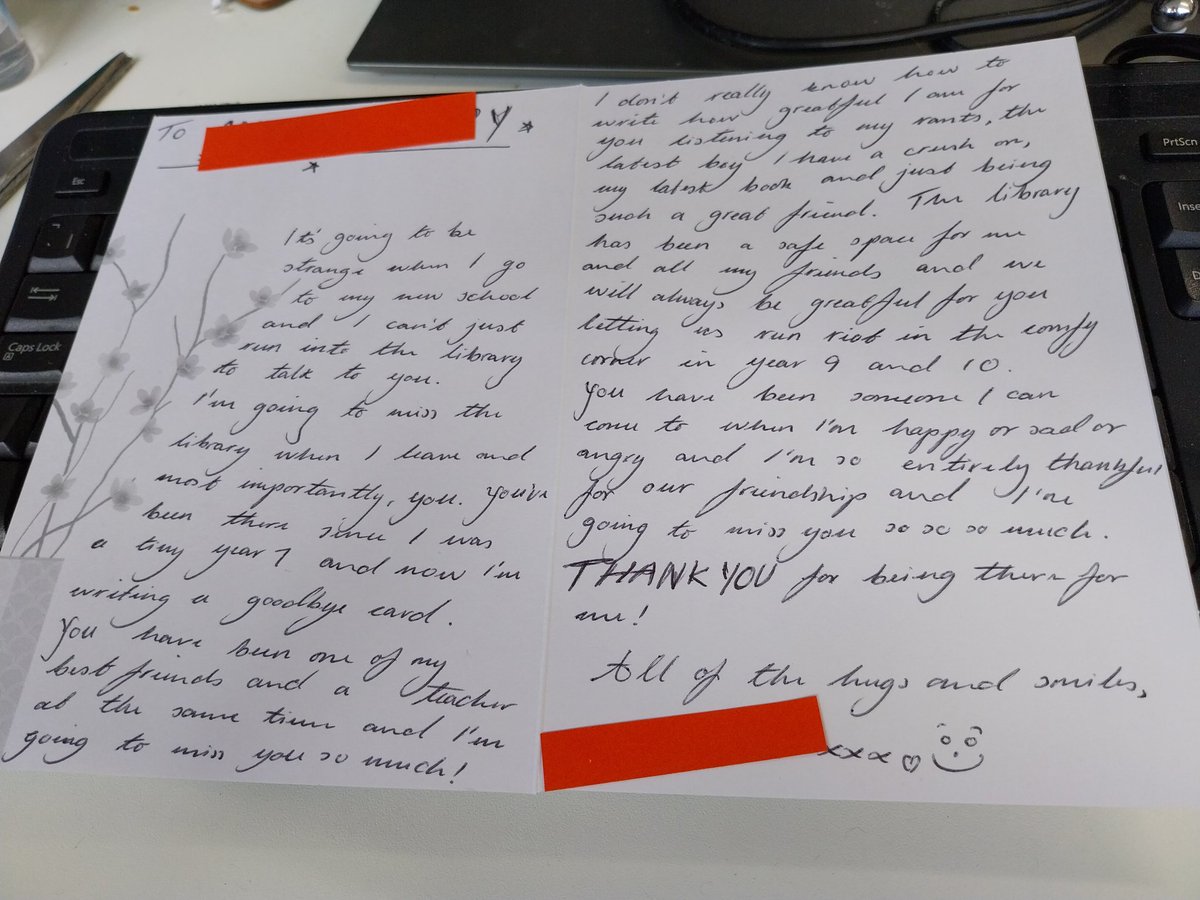 TO
It's going to be
strange when I go
to my new school
and I can't just
run into the library
to talk to you.
I'm going to miss the
library when I leave and
most importantly, you. You've
been there since I was
a tiny year 7 and now I'm
writing a goodbye card.
You have been one of my
best friends and a teacher
at the same time and I'm
going to miss you so much!
I don't really know how to
write how greatful I am for
you listening to my rants, the
latest boy I have a crush on,
my latest book and just being
such a great friend. The library
has been a safe space for me
and all my friends and we
will always be greatful for you
letting us run riot in the comfy
corner in year 9 and 10.
You have been someone I can
come to when I'm happy or sad or
angry and I'm so entirely thankful
for our friendship and I'm
going to miss you so so so much.
THANK YOU for being there for
me!
All of the hugs and smiles,
xxx
Esc
Caps Lock
PrtScn
Inse
D